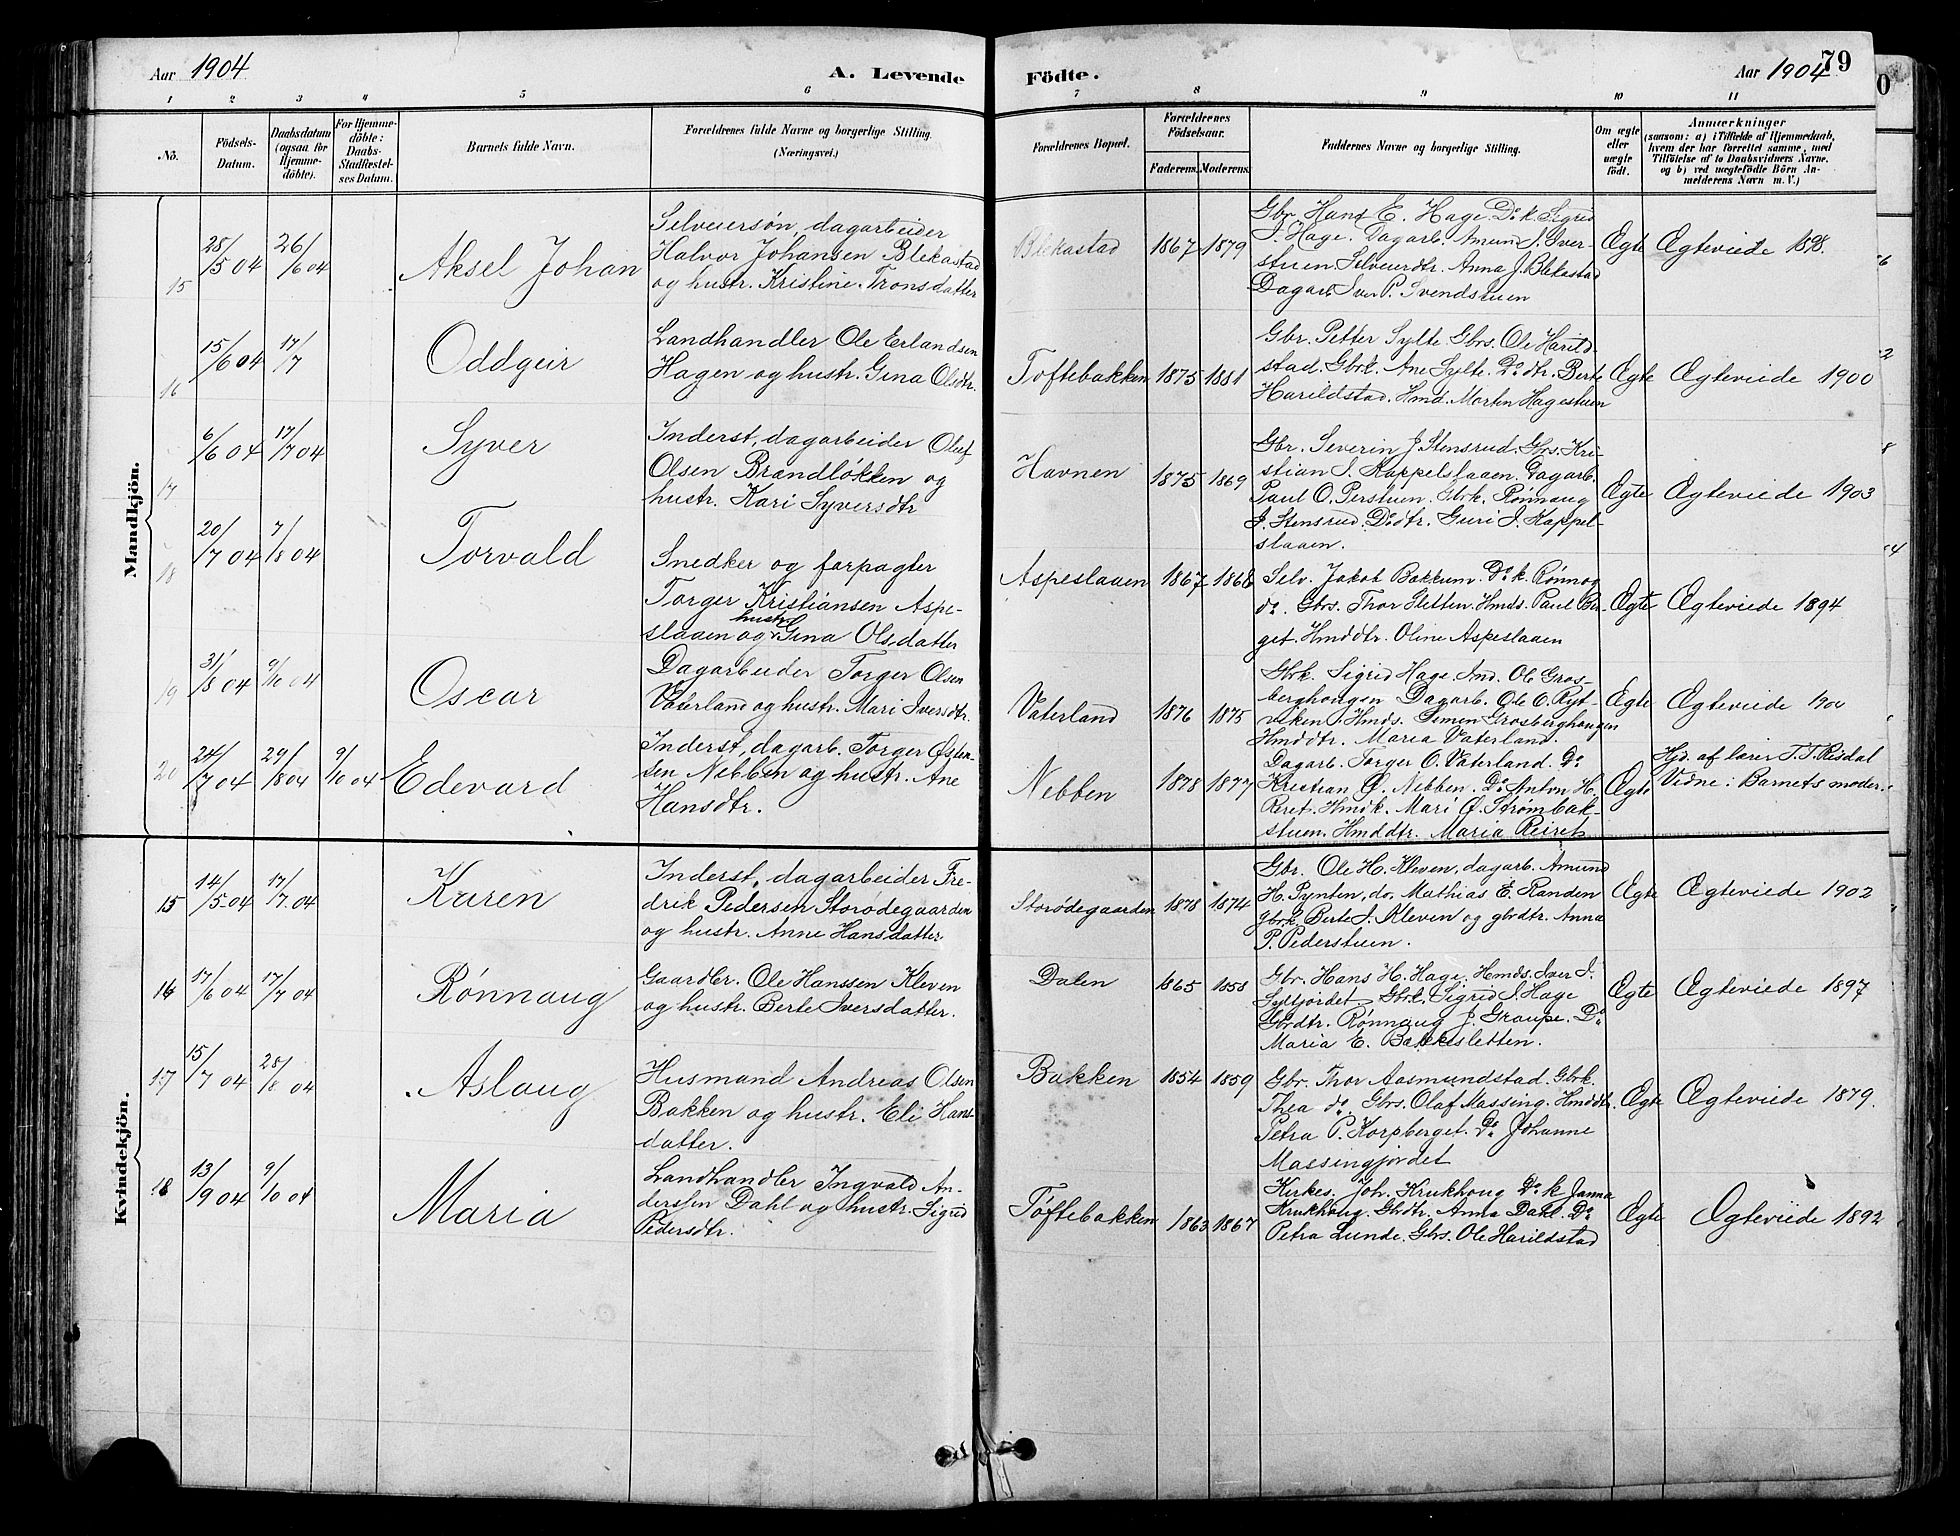 Aar 1904
A. Levende
Födte.
Aar 1904
79
0
1 2 3 4 5 6 7 8 9 10 11
No.
Födsels-
Datum.
Daabsdatum
(ogsaa for
Hjemme-
döbte).
For Hjemme-
döbte:
Daabs-
Stadfæstel-
ses Datum.
Barnets fulde Navn.
Forældrenes fulde Navne og borgerlige Stilling.
(Næringsvei.)
Forældrenes Bopæl.
Forældrenes
Födselsaar.
Faderens. Moderens.
Faddernes Navne og borgerlige Stilling.
Om ægte
eller
uægte
födt.
Anmærkninger
(saasom: a) i Tilfælde af Hjemmedaab,
hvem der har forrettet samme, med
Tilföielse af to Daabsvidners Navne,
og b) ved uægtefödte Börn An-
melderens Navn m. V.)
Mandkjön.
15
28/5 04
26/6 04
Aksel Johan
Selveiersøn, dagarbeider
Halvor Johansen Blekastad
og hustr. Kristine Tronsdatter
Blekastad
1867 1879
Gbr. Hans E. Hage. Do k. Sigrid
J. Hage. Dagarb. Amund J. Iver-
stuen. Selveierdtr. Anna J. Blekastad
Dagarb. Iver P. Svendstuen
Ægte
Ægteviede 1898.
16
15/6 04
17/7
Oddgeir
Landhandler Ole Erlandsen
Hagen og hustr. Gina Olsdtr.
Toftebakken
1875 1881
Gbr. Petter Sylte. Gbrs. Ole Harild-
stad. Gbrk. Ane Sylte. Do dtr. Berte
Harildstad. Hmd. Morten Hagestuen
Ægte
Ægteviede 1900
17
6/6 04
17/7 04
Syver
Inderst, dagarbeider Oluf
Olsen Brændløkken og
hustr. Kari Syversdtr
Havnen
1875 1869
Gbr. Severin J. Stensrud. Gbs. Kri-
stian J. Kappelslaaen. Dagarb.
Paul O. Perstuen. Gbrk. Rønnaug
J. Stensrud. Do dtr. Guri J. Kappel-
slaaen.
Ægte
Ægteviede 1903
18
20/7 04
7/8 04
Torvald
Snedker og forpagter
Torger Kristiansen Aspe-
hustr
slaaen og Gina Olsdatter
Aspeslaaen
1867 1868
Selv. Jakob Bakkum. Do k. Rønnog
do. Gbrs. Thor Sletten. Hmds. Paul Ber-
get. Hmddtr. Oline Aspeslaaen
Ægte
Ægteviede 1894
19
31/8 04
9/10 04
Oscar
Dagarbeider Torger Olsen
Vaterland og hustr. Mari Iversdtr.
Vaterland
1876 1875
Gbrk. Sigrid Hage. Ind. Ole Gros-
berghougen Dagarb. Ole O. Ryt-
viken. Hmds. Simen Grosberghougen
Hmddtr. Maria Vaterland.
Ægte
Ægteviede 1900
20
24/7 04
29/8 04
9/10 04
Edevard
Inderst, dagarb. Torger Østen-
sen Nebben og hustr. Ane
Hansdtr.
Nebben
1878 1877
Dagarb. Torger O. Vaterland. Do
Kristian Ø. Nebben. Do Anton H.
Reiret. Hmdk. Mari Ø. Strømbak-
stuen. Hmddtr. Maria Reiret
Ægte
Hjd. af lærer T. T. Risdal
Vidne: Barnets moder.
Kvindekjön.
15
14/5 04
17/7 04
Karen
Inderst, dagarbeider Fre-
drik Pedersen Storødegaarden
og hustr. Anne Hansdatter
Storødegaarden
1878 1874
Gbr. Ole H. Kleven, dagarb. Amund
H. Pynten, do. Mathias E. Randen
gbrk. Berte J. Kleven og gbrdtr. Anna
P. Pederstuen.
Ægte
Ægteviede 1902
16
17/6 04
17/7 04
Rønnaug
Gaardbr. Ole Hanssen Kleven
og hustr. Berte Iversdatter.
Dalen
1865 1858
Gbr. Hans H. Hage. Hmds. Iver I.
Sylfjordet. Gbrk. Sigrid J. Hage
Gbrdtr. Rønnaug J. Graupe. Do
Maria E. Bakkesletten.
Ægte
Ægteviede 1897
17
15/7 04
28/8 04
Aslaug
Husmand Andreas Olsen
Bakken og hustr. Eli Hans-
datter.
Bakken
1854 1859
Gbr. Thor Aasmundstad. Gbrk.
Thea do. Gbrs. Olaf Massing. Hmddtr.
Petra P. Korpberget. Do Johanne
Massingjordet
Ægte
Ægteviede 1879.
18
13/9 04
9/10 04
Maria
Landhandler Ingvald An-
dersen Dahl og hustr. Sigrid
Pedersdtr.
Toftebakken
1863 1867
Kirkes. Joh. Krukhoug Do k Janna
Krukhoug. Gbdtr. Anna Dahl. Do
Petra Lunde. Gbrs. Ole Harildstad
Ægte
Ægteviede 1892